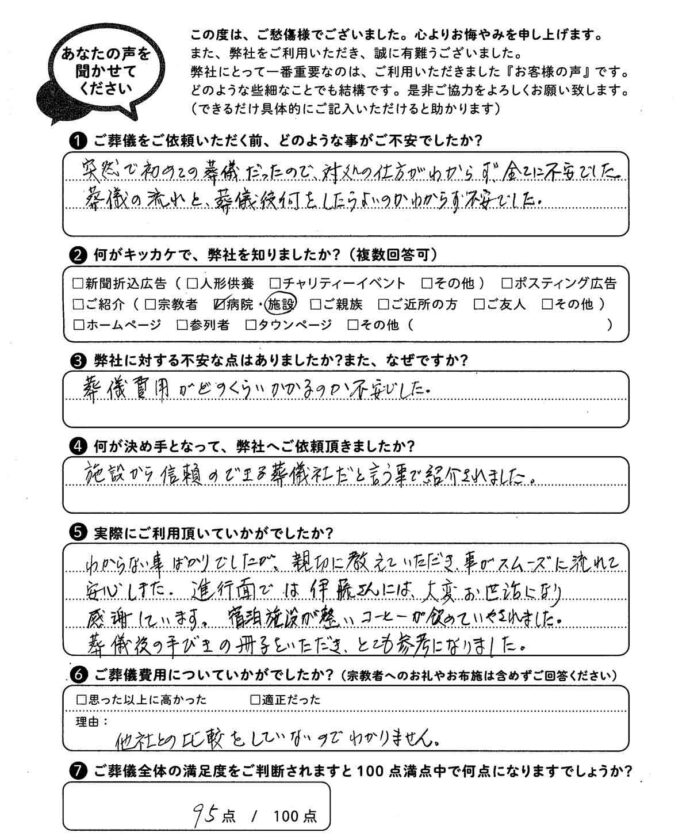 あなたの声を
聞かせて
ください
この度は、ご愁傷様でございました。心よりお悔やみを申し上げます。
また、弊社をご利用いただき、誠に有難うございました。
弊社にとって一番重要なのは、ご利用いただきました『お客様の声』です。
どのような些細なことでも結構です。是非ご協力をよろしくお願い致します。
(できるだけ具体的にご記入いただけると助かります)
❶ ご葬儀をご依頼いただく前、どのような事がご不安でしたか?
突然で初めての葬儀だったので、対処の仕方がわからず全てに不安でした。
葬儀の流れと、葬儀後何をしたらよいのかわからず不安でした。
❷ 何がキッカケで、弊社を知りましたか?(複数回答可)
□新聞折込広告(□人形供養 □チャリティーイベント □その他) □ポスティング広告
□ご紹介(□宗教者 ☑病院・施設 □ご親族 □ご近所の方 □ご友人 □その他)
□ホームページ □参列者 □タウンページ □その他( )
❸ 弊社に対する不安な点はありましたか?また、なぜですか?
葬儀費用がどのくらいかかるのか不安でした。
❹ 何が決め手となって、弊社へご依頼頂きましたか?
施設から信頼のできる葬儀社だと言う事で紹介されました。
❺ 実際にご利用頂いていかがでしたか?
わからない事ばかりでしたが、親切に教えていただき、事がスムーズに流れて
安心しました。進行面では伊藤さんには、大変お世話になり
感謝しています。宿泊施設が整いコーヒーが飲めていやされました。
葬儀後の手びきの冊子をいただき、とても参考になりました。
❻ ご葬儀費用についていかがでしたか?(宗教者へのお礼やお布施は含めずご回答ください)
□思った以上に高かった □適正だった
理由:
他社との比較をしていないのでわかりません。
❼ ご葬儀全体の満足度をご判断されますと100点満点中で何点になりますでしょうか?
95点 / 100点